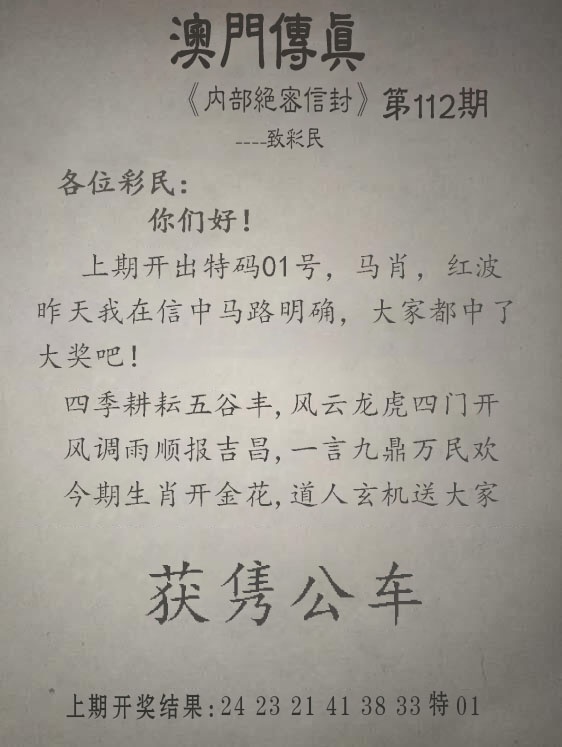 澳門傳真
《内部絕密信封》第112期
----致彩民
各位彩民：
你们好！
上期开出特码01号，马肖，红波
昨天我在信中马路明确，大家都中了
大奖吧！
四季耕耘五谷丰,风云龙虎四门开
风调雨顺报吉昌,一言九鼎万民欢
今期生肖开金花,道人玄机送大家
获隽公车
上期开奖结果:24 23 21 41 38 33特01